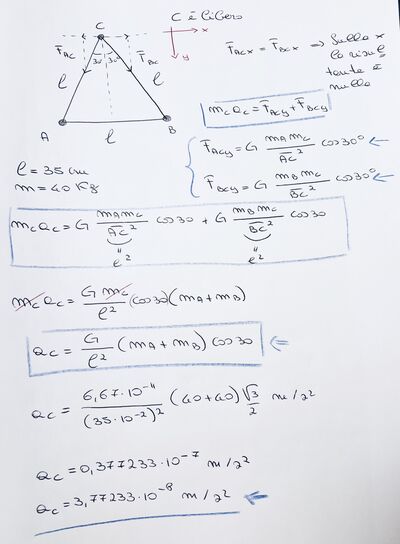 C
C è libero
x
y
F_AC
30° 30°
F_BC
l
l
A
l
B
F_ACx = F_BCx ⇒ Sulla x
la risul
tante è
nulla
m_C a_C = F_ACy + F_BCy
F_ACy = G m_A m_C / AC² cos30°
F_BCy = G m_B m_C / BC² cos30°
l = 35 cm
m = 40 Kg
m_C a_C = G m_A m_C / AC² cos 30 + G m_B m_C / BC² cos 30
= l² = l²
m_C a_C = G m_C / l² (cos 30)(m_A + m_B)
a_C = G / l² (m_A + m_B) cos 30
a_C = 6,67·10⁻¹¹ / (35·10⁻²)² (40+40) √3/2 m/s²
a_C = 0,377233·10⁻⁷ m/s²
a_C = 3,77233·10⁻⁸ m/s²